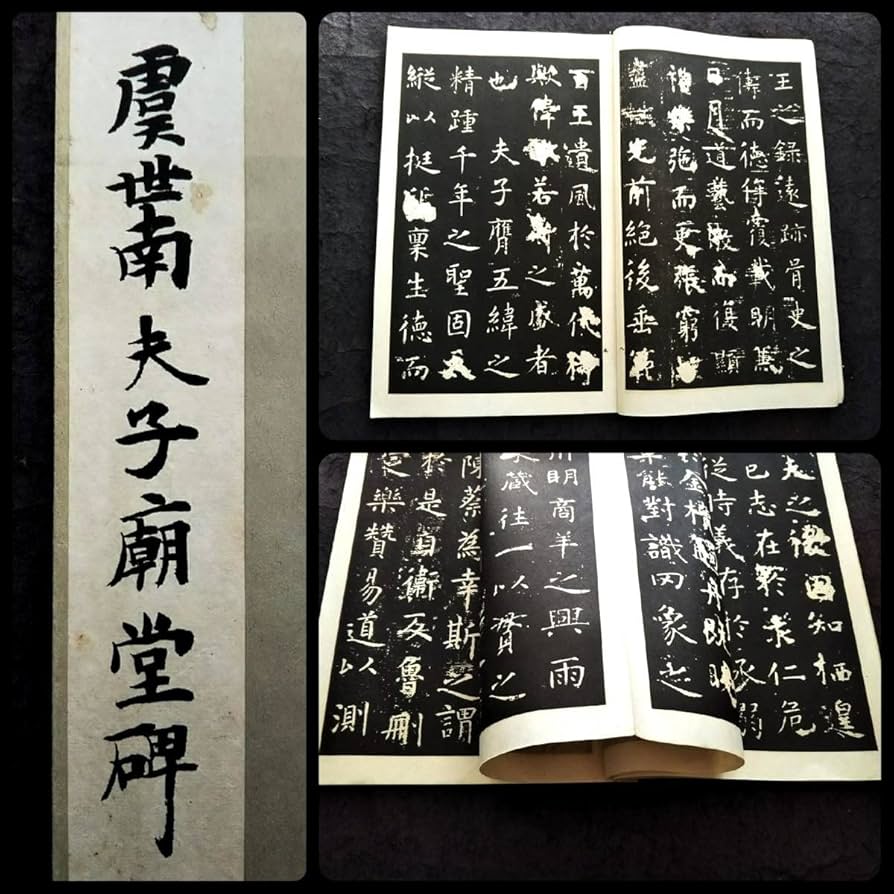 虞世南夫子廟堂碑
王之錄遠跡胥史之
儔而德侔覆載明兼
日月道藝而復顯
樂弛而更張窮
盡光前絕後垂範
百王遺風於萬代猗
歟偉若之盛者
也 夫子膺五緯之
精踵千年之聖固
縱以挺稟生德而
之知栖遑
已志在於求仁危
從時義存於承溺
金相
對識罔象之
明商羊之興雨
藏往一以貫之
陳蔡為幸斯之謂
於是自衛反魯刪
樂贊易道以測